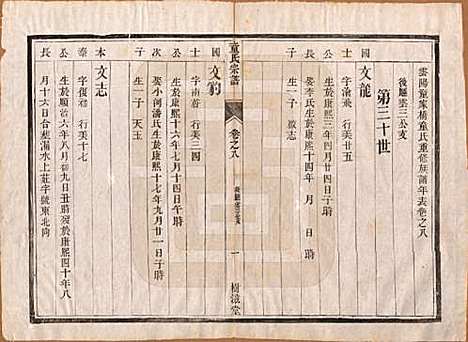 雲陽董家橋董氏重修族譜年表卷之八
後□雲三公支
第三十世
文龍
國 字□飛 行美廿五
士 生於康熙三年四月廿四日子時
公 娶李氏生於康熙十四年 月 日 時
長 生一子 □志
子
董氏宗譜
卷之八
後□雲三公支
一
樹滋堂
文豹
國 字南若 行美三四
士 生於康熙十六年七月十四日午時
公 娶小河潘氏生於康熙十七年九月廿一日子時
次 生一子 天玉
子
文志
本 字復初 行美十七
泰 生於順治六年八月初九日丑時歿於康熙四十年八
公 月十六日合葬漏水上莊字號東北向
長